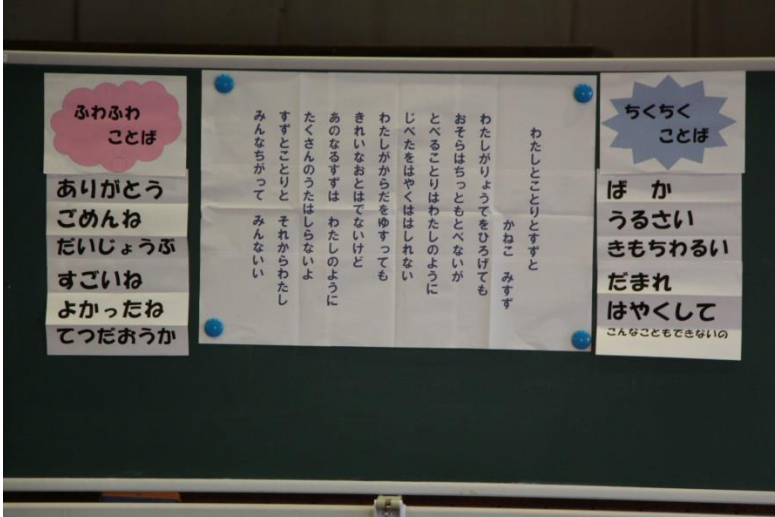 ふわふわ
ことば
ありがとう
ごめんね
だいじょうぶ
すごいね
よかったね
てつだおうか
わたしとことりとすずと
かねこ　みすず
わたしがりょうてをひろげても
おそらはちっともとべないが
とべることりはわたしのように
じべたをはやくははしれない
わたしがからだをゆすっても
きれいなおとはでないけど
あのなるすずは　わたしのように
たくさんのうたはしらないよ
すずとことりと　それからわたし
みんなちがって　みんないい
ちくちく
ことば
ばか
うるさい
きもちわるい
だまれ
はやくして
こんなこともできないの